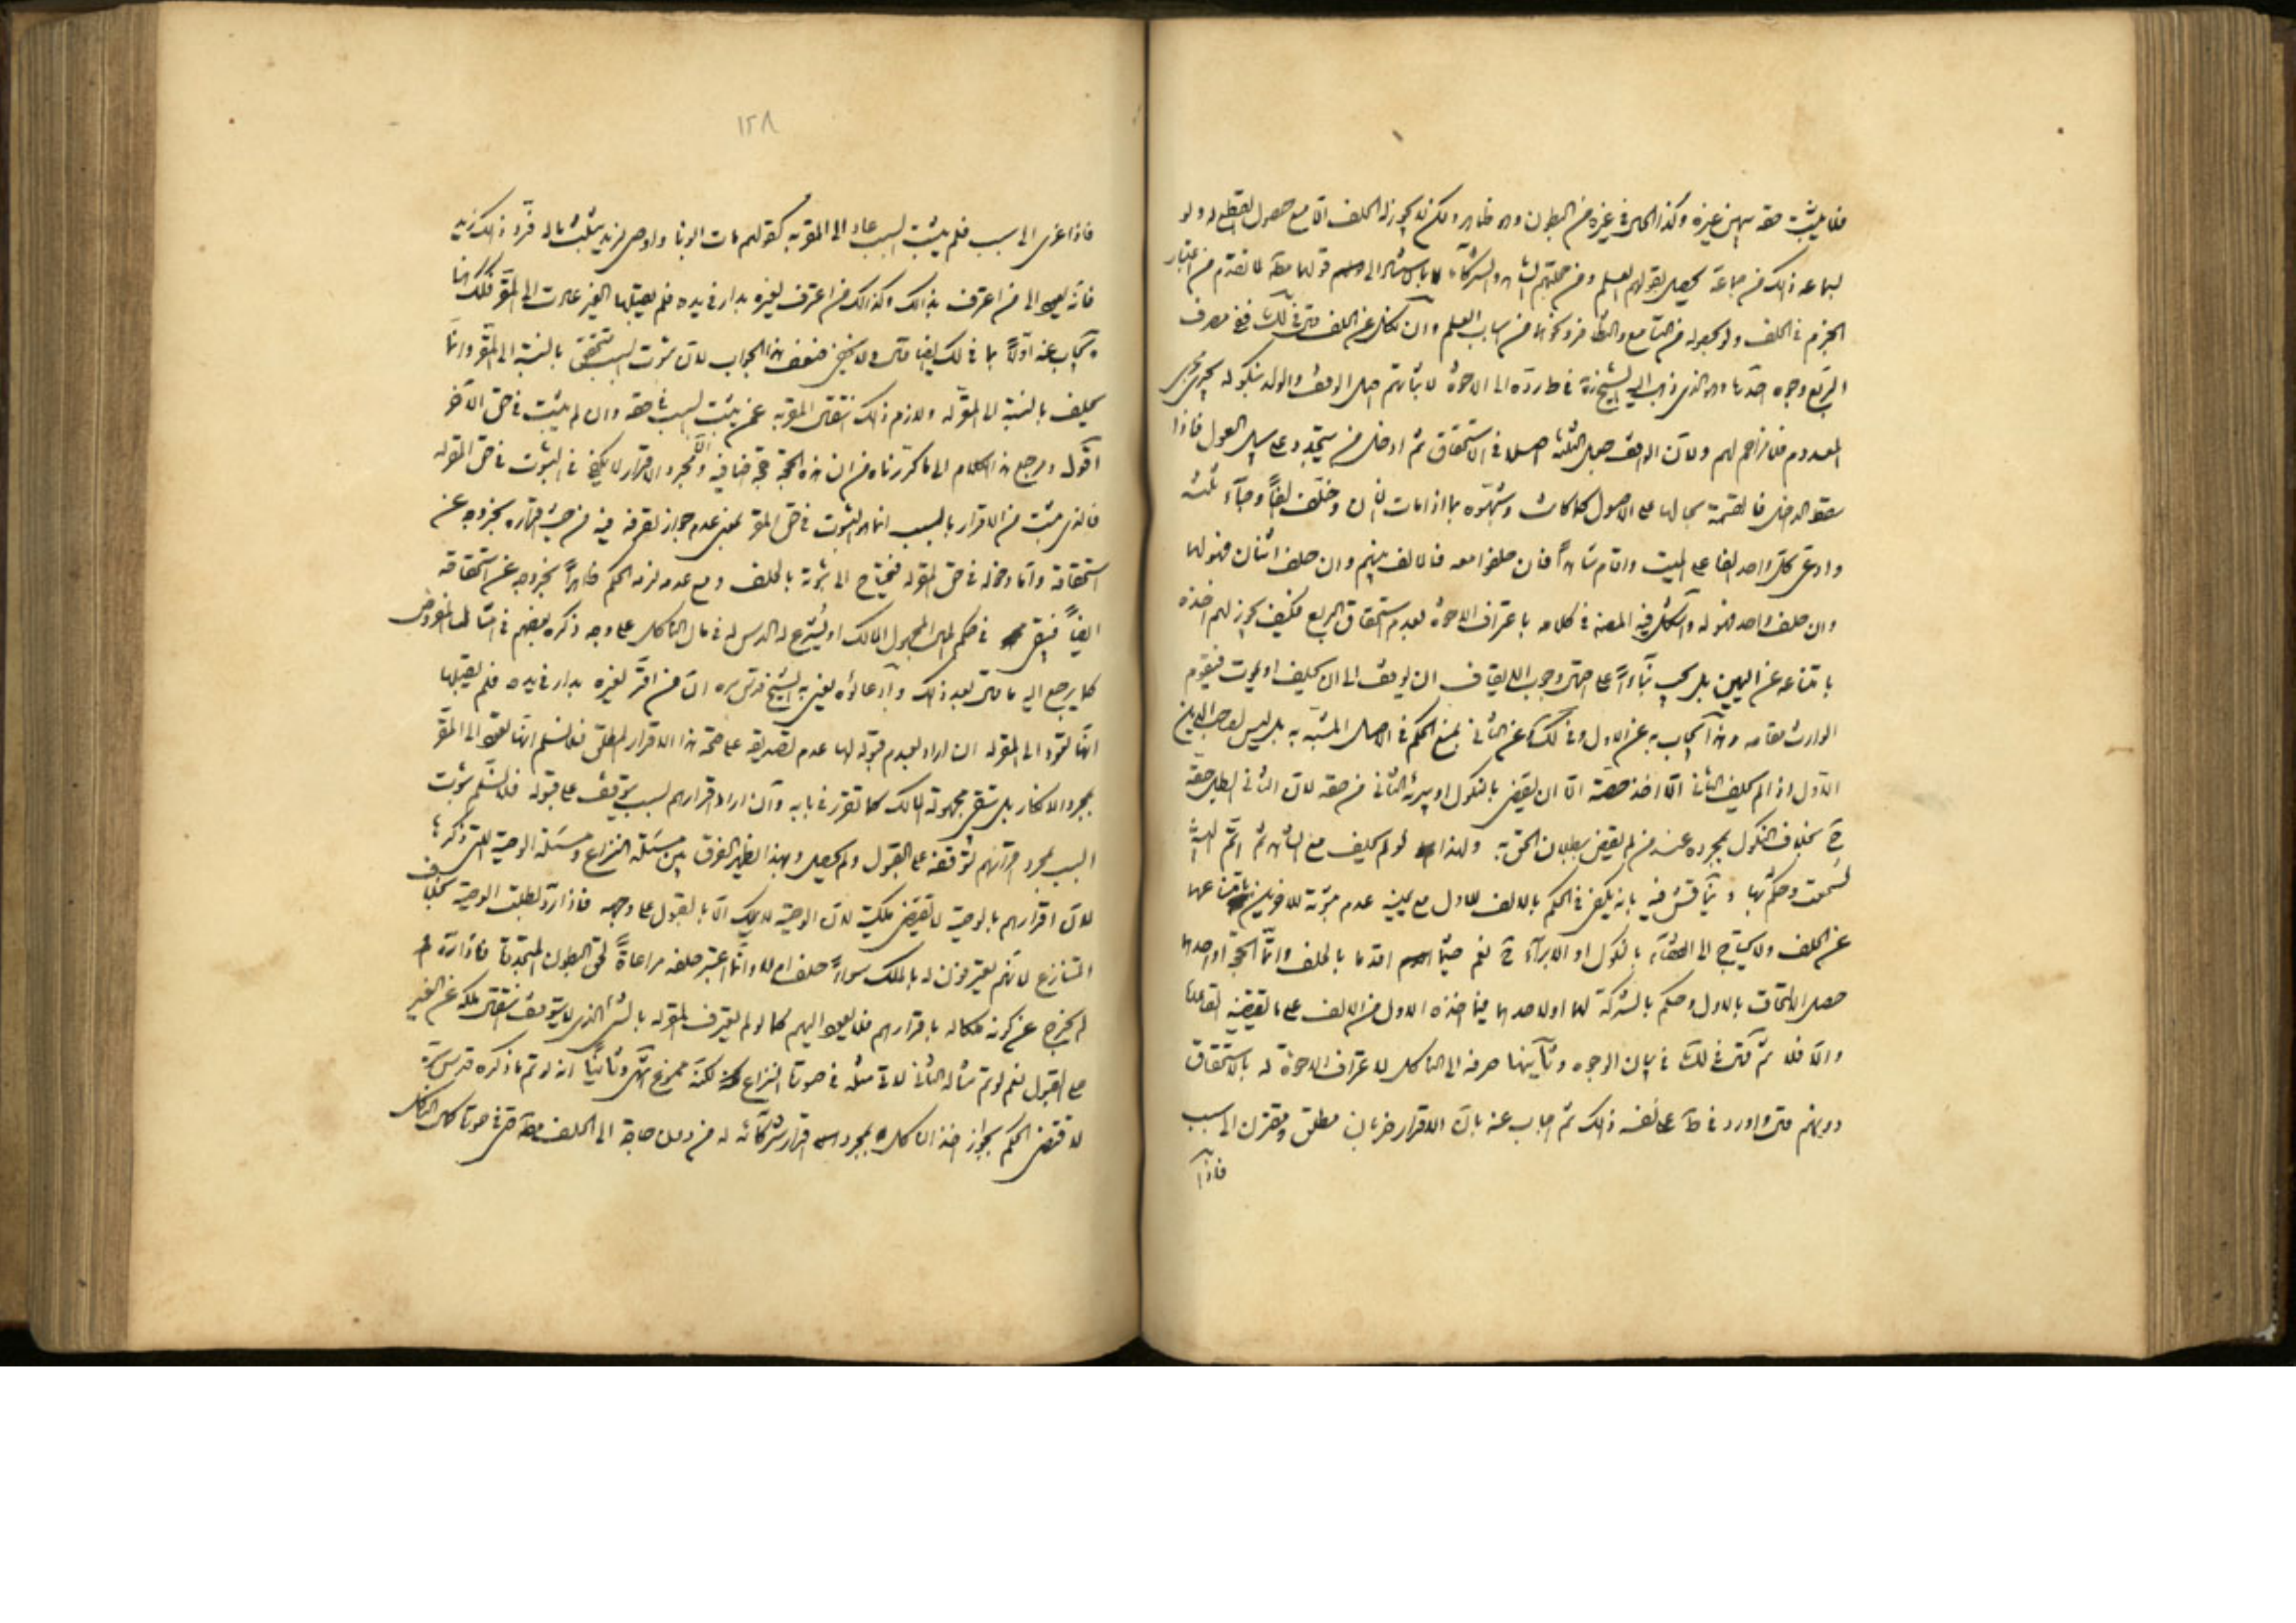 فلا يثبت حقه بيمين غيره وكذا الحال في غيره من البطون وهو ظاهر ولكن لا يجوز له الحلف الا مع حصول القطع له ولو
لسماعه ذلك من جماعة يحصل بقولهم العلم ومن جملتهم الشاهد والشركاء قولهما معه لما تقدم من اعتبار
الجزم في الحلف ولو بحصوله من التسامع والتظافر ونحوهما من اسباب العلم وان نكل عن الحلف ففي مصرف
الربع وجوه احدها وهو الذي ذهب اليه الشيخ في ط رده الى الاخوة لاثباتهم اصل الوقف والولد بنكوله يجري مجرى
المعدوم فلا مزاحم لهم ولان الواقف جعل الثلثة اصلا في الاستحقاق ثم ادخل من يتجدد على سبيل العول فاذا
سقط الداخل فالقسمة بحالها على الاصول كما كانت وشبهوه بما اذا مات انسان وخلف الفا وجاء ثلثة
وادعى كل واحد الفا على الميت واقام شاهدا فان حلفوا معه فالالف بينهم وان حلف اثنان فهو لهما
وان حلف واحد فهو له واستشكل فيه المصنف في كلامه باعتراف الاخوة بعدم استحقاق الربع فكيف يجوز لهم اخذه
بامتناعه عن اليمين بل يجب بناء على وجوب الايقاف ان يوقف الى ان يحلف او يموت فيقوم
الوارث مقامه وهذا يجاب به عن الاول وفي لك عن الثاني بمنع الحكم في الاصل المشبه به بل ليس لصاحب الدين
الاول اذا لم يحلف الثاني الا اخذ حصته الا ان يقضي بالنكول او يبرئه الثاني من حقه لان الثاني ابطل حقه
ح بخلاف النكول بمجرده عند من لم يقض ببطلان الحق به ولهذا لو لم يحلف مع الشاهد ثم اتم البينة
لسمعت وحكم بها ويناقش فيه بانه يكفي في الحكم بالالف للاول مع يمينه عدم مبرئة للاخرين بامتناعهما
عن الحلف ولا يحتاج الى القضاء بالنكول او الابراء ح نعم اقدما بالحلف واتما الحجة او احدهما
حصل الالتحاق بالاول وحكم بالشركة لهما او لاحدهما فيما اخذه الاول من الالف على ما يقتضيه القاعدة
والا فلا ثم قال في لك في بيان الوجوه وثانيها صرفه الى الناكل لاعتراف الاخوة له باستحقاق
دونهم قال واورد في ط على نفسه ذلك ثم اجاب عنه بان الاقرار ضربان مطلق ومقترن الى سبب
فاذا
١٢٨
فاذا عزى الى سبب فلم يثبت السبب عاد الى المقر به كقولهم مات ابونا واوصى لزيد بثلث ماله فرد ذلك زيد
فانه يعود الى من اعترف بذلك وكذلك من اعترف لغيره بدار في يده فلم يقبلها الغير عادت الى المقر فكذلك هنا
ويجاب عنه اولا بما في لك ايضا قال ولا يخفى ضعف هذا الجواب لان ثبوت السبب متحقق بالنسبة الى المقر وانما
يحلف بالنسبة الى المقر له ولازم ذلك انتقال المقر به عمن يثبت السبب في حقه وان لم يثبت في حق الاخر
اقول ومرجع هذا الكلام الى ما كررناه من ان هذه الحجة حجة اضافية والا فمجرد الاقرار لا يكفي في الثبوت في حق المقر له
فالذي يثبت من الاقرار بالسبب انما هو الثبوت في حق المقر بمعنى عدم جواز تصرفه فيه من حيث اقراره بخروجه عن
استحقاقه واما دخوله في حق المقر له فيحتاج الى ثبوته بالحلف ومع عدمه لزمه الحكم ظاهرا بخروجه عن استحقاقه
ايضا فيبقى في حكم المال المجهول المالك او يشرع له الدس له في مال الناكل على وجه ذكره بعضهم في امثال المفروض
كما يرجع اليه ما قال بعد ذلك وادعاؤه يعني به الشيخ قدس سره ان من اقر لغيره بدار في يده فلم يقبلها
انها تعود الى المقر له ان اراد بعدم قبوله لها عدم تصديقه على صحة هذا الاقرار المطلق فلا نسلم انها تعود الى المقر
بمجرد الانكار بل تبقى مجهولة المالك كما تقرر في بابه وان اراد اقرارهم بسبب يتوقف على قبوله فلا نسلم ثبوت
السبب بمجرد اقرارهم لتوقفه على القبول ولم يحصل وبهذا يظهر الفرق بين مسئلة النزاع ومسئلة الوصية التي ذكرها
لان اقرارهم بالوصية لا يقتضي ملكيته لان الوصية لا تملك الا بالقبول على وجهه فاذا رد بطلت الوصية بخلاف
التنازع لانهم يعترفون له بالملك سواء حلف ام لا وانما اعتبر حلفه مراعاة لحق البطون المتجددة فاذا رده
لم يخرج عن كونه ملكا له باقرارهم فلا يعود اليهم كما لو لم يعترف المقر له بالشيء الذي لا يتوقف انتقال ملكه عن الغير
على القبول نعم لو تم مثاله الثاني لاتى مثله في صورة النزاع لكنه ممنوع انتهى وثانيا انه لو تم ما ذكره قدس سره
لاقتضى الحكم بجواز اخذ الناكل بمجرد اقرار شركائه له من دون حاجة الى الحلف معه حتى في صورة كمال الناكل